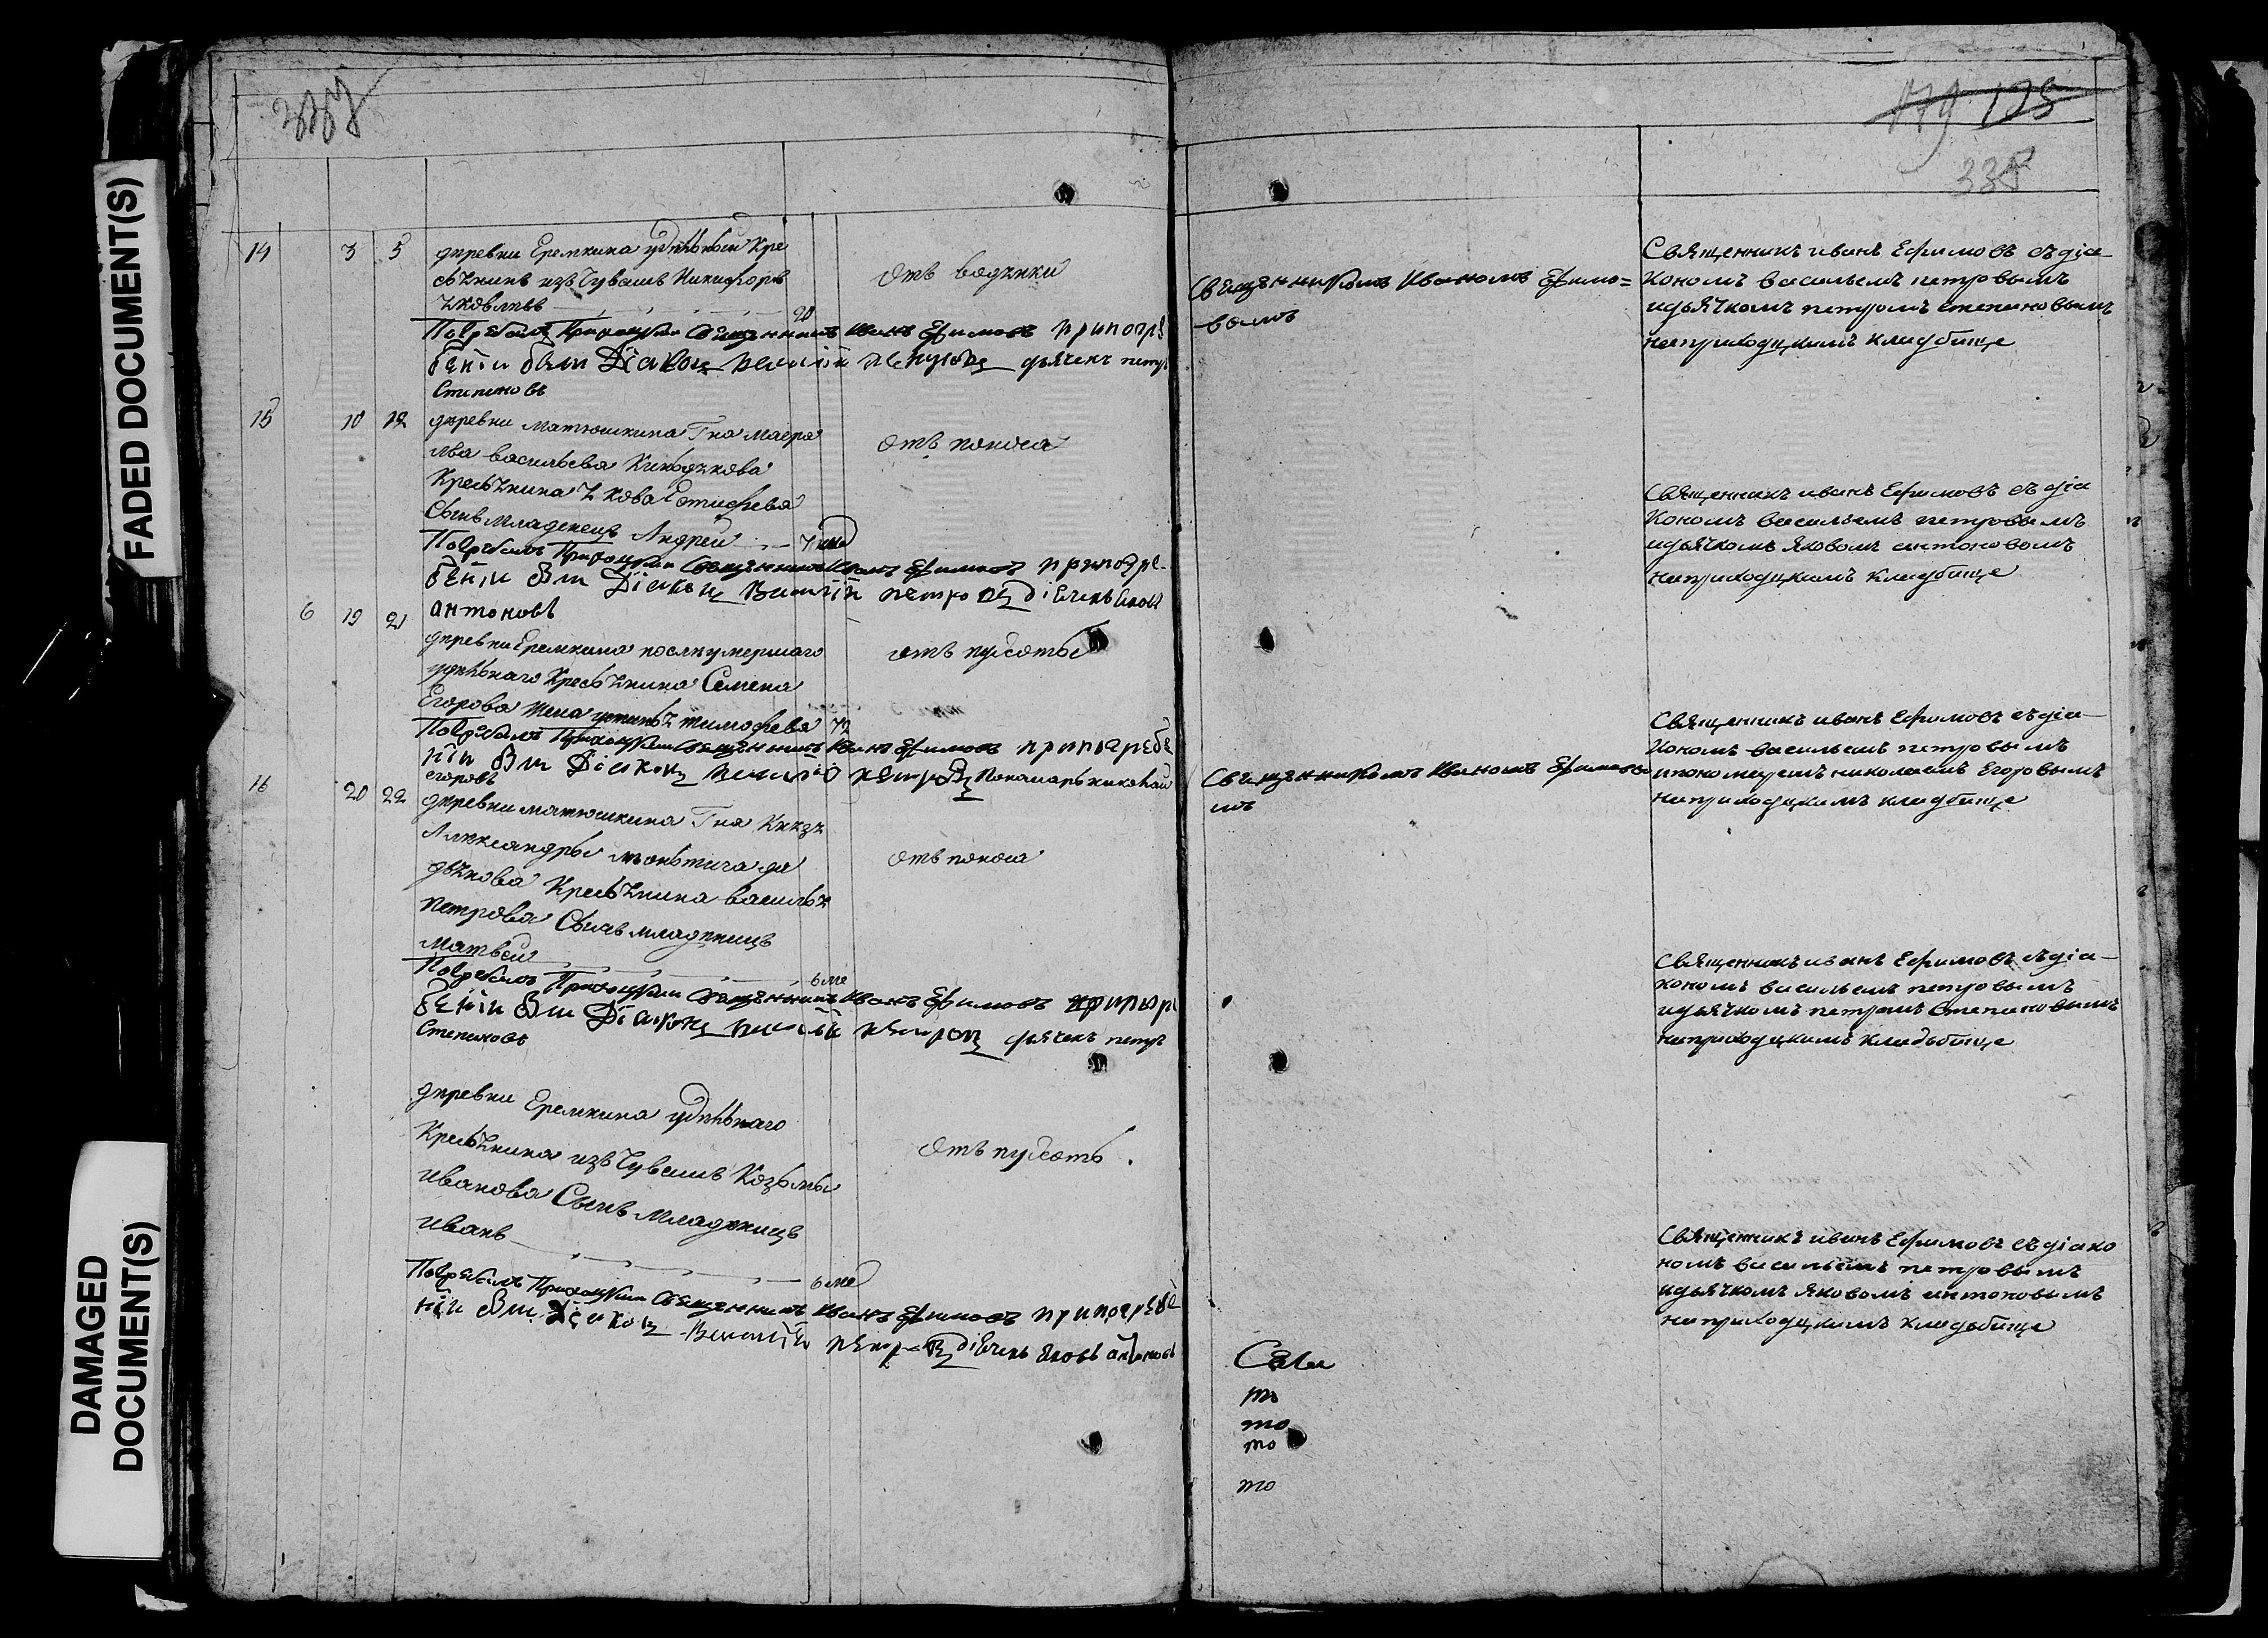 FADED DOCUMENT(S)
DAMAGED
DOCUMENT(S)
335
14 3 5 деревни Еремкина удельной Кре
стьянинъ изъ Чувашъ Никифоръ
Яковлевъ 20
отъ водянки
Погребалъ Приходский Священникъ Иванъ Ефимовъ при погре
бении был Диаконъ Василий Петровъ дьячекъ петръ
Степановъ
15 10 12 деревни Матюшкина Гна маера
льва васильева
Крестьянина Якова Евтифеева
Сынъ младенецъ Андрей
отъ поноса
Погребалъ Приходский Священникъ Иванъ Ефимовъ при погре-
бении был Диаконъ Василий петровъ дiячекъ яковъ
антоновъ
6 19 21
деревни Еремкина после умершаго
удельнаго Крестьянина Семена
Егорова жена устинья тимофеева 72
отъ пухоты
Погребалъ Приходский Священникъ Иванъ Ефимовъ при погребе
нии был Диаконъ Василий петровъ Пономарь николай
егоровъ
16 20 22 деревни матюшкина Гна Князя
Александры
Крестьянина василья
петрова Сынъ младенецъ
матвей 6 ме
отъ поноса
Погребалъ Приходский Священникъ Иванъ Ефимовъ при погре
бении был Диаконъ Василий петровъ дьячекъ петръ
Степановъ
деревни Еремкина удельнаго
Крестьянина изъ Чувашъ Козьмы
иванова Сынъ младенецъ
иванъ 6 ме
отъ пухоты
Погребалъ Приходский Священникъ Иванъ Ефимовъ при погребе
нии был Диаконъ Василий петровъ дiячекъ яковъ антоновъ
Священникомъ Иваномъ Ефимо=
вымъ
Священникомъ Иваномъ Ефимовы
мъ
то
то
то
то
Священникъ иванъ Ефимовъ съ дiа
кономъ васильемъ петровымъ
идьячкомъ петромъ степановымъ
на приходцкимъ кладбище
Священникъ иванъ Ефимовъ съ дiа
кономъ васильемъ петровымъ
идьячкомъ яковомъ антоновомъ
на приходцкимъ кладбище
Священникъ иванъ Ефимовъ съ дiа-
кономъ васильемъ петровымъ
ипономаремъ николаемъ Егоровымъ
на приходцкимъ кладбище
Священникъ иванъ Ефимовъ съ дiа-
кономъ васильемъ петровымъ
идьячкомъ петромъ Степановымъ
на приходцкимъ кладьбище
Священникъ иванъ Ефимовъ съ дiако
номъ васильемъ петровымъ
идьячкомъ яковомъ антоновымъ
на приходцкимъ кладьбище